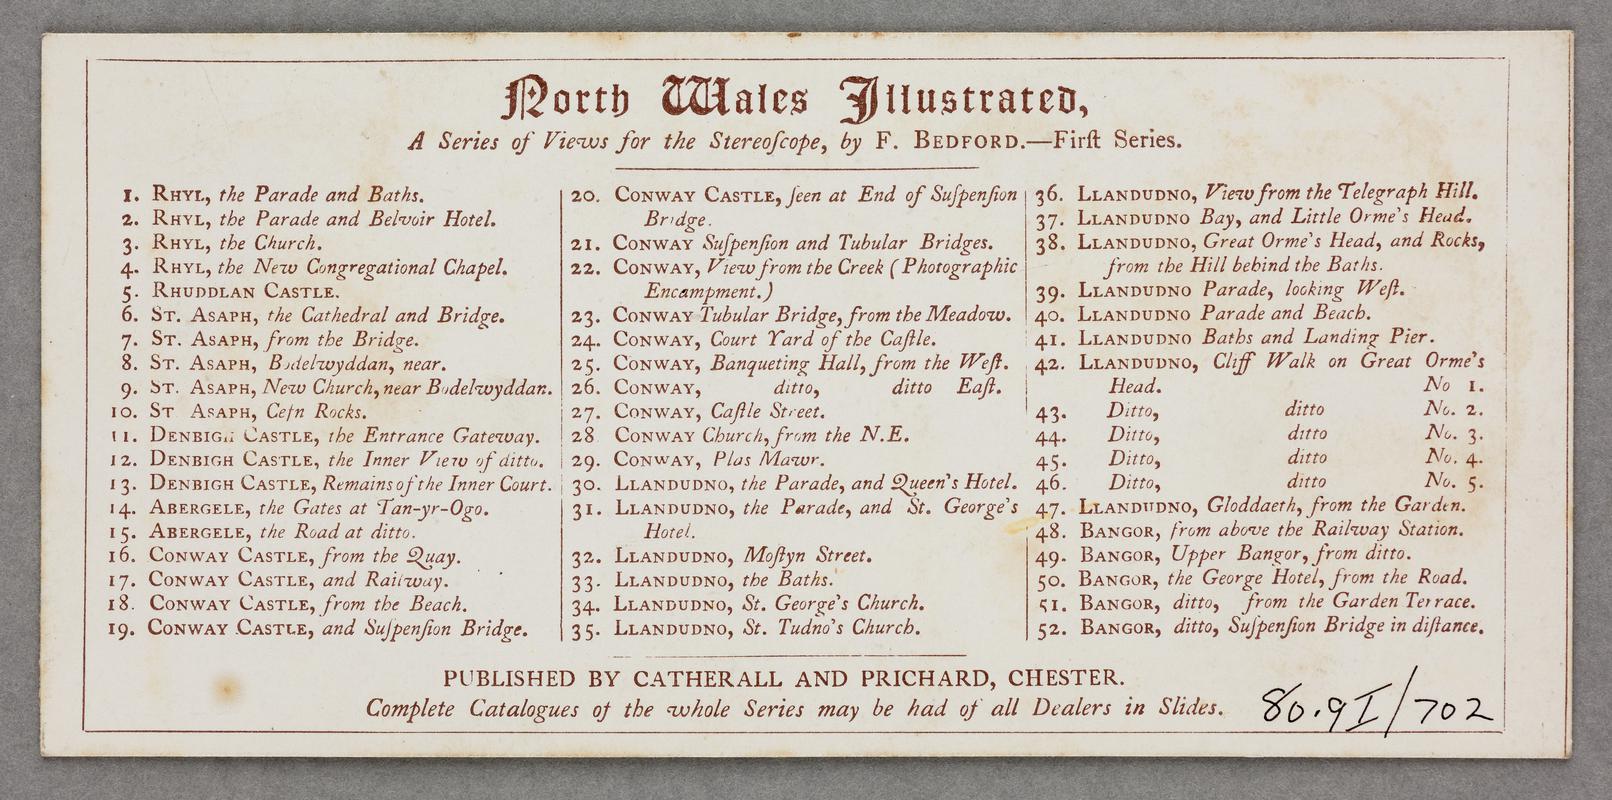 North Wales Illustrated,
A Series of Views for the Stereoſcope, by F. BEDFORD.—Firſt Series.
1. RHYL, the Parade and Baths.
2. RHYL, the Parade and Belvoir Hotel.
3. RHYL, the Church.
4. RHYL, the New Congregational Chapel.
5. RHUDDLAN CASTLE.
6. ST. ASAPH, the Cathedral and Bridge.
7. ST. ASAPH, from the Bridge.
8. ST. ASAPH, Bodelwyddan, near.
9. ST. ASAPH, New Church, near Bodelwyddan.
10. ST ASAPH, Cefn Rocks.
11. DENBIGH CASTLE, the Entrance Gateway.
12. DENBIGH CASTLE, the Inner View of ditto.
13. DENBIGH CASTLE, Remains of the Inner Court.
14. ABERGELE, the Gates at Tan-yr-Ogo.
15. ABERGELE, the Road at ditto.
16. CONWAY CASTLE, from the Quay.
17. CONWAY CASTLE, and Railway.
18. CONWAY CASTLE, from the Beach.
19. CONWAY CASTLE, and Suſpenſion Bridge.
20. CONWAY CASTLE, ſeen at End of Suſpenſion
Bridge.
21. CONWAY Suſpenſion and Tubular Bridges.
22. CONWAY, View from the Creek (Photographic
Encampment.)
23. CONWAY Tubular Bridge, from the Meadow.
24. CONWAY, Court Yard of the Caſtle.
25. CONWAY, Banqueting Hall, from the Weſt.
26. CONWAY, ditto, ditto Eaſt.
27. CONWAY, Caſtle Street.
28 CONWAY Church, from the N.E.
29. CONWAY, Plas Mawr.
30. LLANDUDNO, the Parade, and Queen's Hotel.
31. LLANDUDNO, the Parade, and St. George's
Hotel.
32. LLANDUDNO, Moſtyn Street.
33. LLANDUDNO, the Baths.
34. LLANDUDNO, St. George's Church.
35. LLANDUDNO, St. Tudno's Church.
36. LLANDUDNO, View from the Telegraph Hill.
37. LLANDUDNO Bay, and Little Orme's Head.
38. LLANDUDNO, Great Orme's Head, and Rocks,
from the Hill behind the Baths.
39. LLANDUDNO Parade, looking Weſt.
40. LLANDUDNO Parade and Beach.
41. LLANDUDNO Baths and Landing Pier.
42. LLANDUDNO, Cliff Walk on Great Orme's
Head. No 1.
43. Ditto, ditto No. 2.
44. Ditto, ditto No. 3.
45. Ditto, ditto No. 4.
46. Ditto, ditto No. 5.
47. LLANDUDNO, Gloddaeth, from the Garden.
48. BANGOR, from above the Railway Station.
49. BANGOR, Upper Bangor, from ditto.
50. BANGOR, the George Hotel, from the Road.
51. BANGOR, ditto, from the Garden Terrace.
52. BANGOR, ditto, Suſpenſion Bridge in diſtance.
PUBLISHED BY CATHERALL AND PRICHARD, CHESTER.
Complete Catalogues of the whole Series may be had of all Dealers in Slides.
80.9I/702